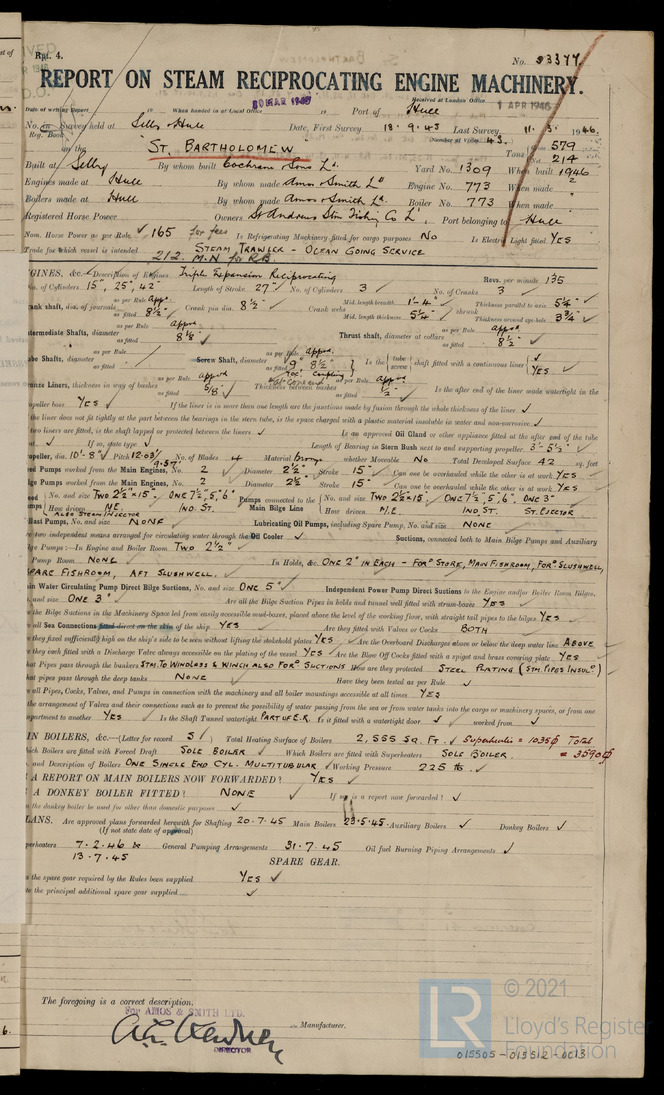 Rpt. 4.
No. 53377
REPORT ON STEAM RECIPROCATING ENGINE MACHINERY.
Received at London Office 1 APR 1946
Date of writing Report When handed in at Local Office 30 MAR 1946 Port of Hull
No. in Survey held at Selby & Hull Date, First Survey 18.9.43 Last Survey 11.3.1946.
Reg. Book. (Number of Visits 43.)
on the ST. BARTHOLOMEW Tons 579 214
Built at Selby By whom built Cochrane & Sons Ld. Yard No. 1309 When built 1946
Engines made at Hull By whom made Amos & Smith Ld Engine No. 773 When made "
Boilers made at Hull By whom made Amos & Smith Ld. Boiler No. 773 When made "
Registered Horse Power Owners St Andrews Stm Fishing Co Ld. Port belonging to Hull
Nom. Horse Power as per Rule 165 for fees Is Refrigerating Machinery fitted for cargo purposes No Is Electric Light fitted YES
Trade for which vessel is intended STEAM TRAWLER - OCEAN GOING SERVICE
212. M.N for R.B
GINES, &c. Description of Engines Triple Expansion Reciprocating Revs. per minute 135
No. of Cylinders 15", 25", 42" Length of Stroke 27" No. of Cylinders 3 No. of Cranks 3
rank shaft, dia. of journals as per Rule appd. as fitted 8½" Crank pin dia. 8½" Crank webs Mid. length breadth 1'-4" Mid. length thickness 5¼" shrunk Thickness parallel to axis 5¼" Thickness around eye-hole 3¾"
termediate Shafts, diameter as per Rule appd as fitted 8⅛" Thrust shaft, diameter at collars as per Rule appd. as fitted 8½"
ube Shafts, diameter as per Rule as fitted Screw Shaft, diameter as per Rule appd. as fitted 9" 8½" Is the tube screw shaft fitted with a continuous liner YES
onze Liners, thickness in way of bushes as per Rule appd as fitted 5/8" Thickness between bushes as per Rule appd as fitted ½" Is the after end of the liner made watertight in the
opeller boss YES If the liner is in more than one length are the junctions made by fusion through the whole thickness of the liner
the liner does not fit tightly at the part between the bearings in the stern tube, is the space charged with a plastic material insoluble in water and non-corrosive
two liners are fitted, is the shaft lapped or protected between the liners Is an approved Oil Gland or other appliance fitted at the after end of the tube
If so, state type Length of Bearing in Stern Bush next to and supporting propeller 3'-5½"
opeller, dia. 10'-8" Pitch 12.03/9.57 No. of Blades 4 Material Bronze whether Moveable No Total Developed Surface 42 sq. feet
ed Pumps worked from the Main Engines, No. 2 Diameter 2½" Stroke 15" Can one be overhauled while the other is at work YES
lge Pumps worked from the Main Engines, No. 2 Diameter 2½" Stroke 15" Can one be overhauled while the other is at work YES
eed No. and size TWO 2½"x15". ONE 7½", 5", 6" Pumps connected to the No. and size TWO 2½"x15 ONE 7½", 5", 6". ONE 3"
mps How driven M.E. IND. ST. Main Bilge Line How driven M.E. IND. ST. ST. EJECTOR
ALSO STEAM INJECTOR
llast Pumps, No. and size NONE Lubricating Oil Pumps, including Spare Pump, No. and size NONE
e two independent means arranged for circulating water through the Oil Cooler Suctions, connected both to Main Bilge Pumps and Auxiliary
ge Pumps:—In Engine and Boiler Room TWO 2½"
Pump Room NONE In Holds, &c. ONE 2" IN EACH - FORD STORE, MAIN FISHROOM, FORD SLUSHWELL,
SPARE FISHROOM, AFT SLUSHWELL.
in Water Circulating Pump Direct Bilge Suctions, No. and size ONE 5" Independent Power Pump Direct Suctions to the Engine and/or Boiler Room Bilges,
and size ONE 3" Are all the Bilge Suction Pipes in holds and tunnel well fitted with strum-boxes YES
e the Bilge Suctions in the Machinery Space led from easily accessible mud-boxes, placed above the level of the working floor, with straight tail pipes to the bilges YES
e all Sea Connections fitted direct on the skin of the ship YES Are they fitted with Valves or Cocks BOTH
e they fixed sufficiently high on the ship's side to be seen without lifting the stokehold plates YES Are the Overboard Discharges above or below the deep water line ABOVE
e they each fitted with a Discharge Valve always accessible on the plating of the vessel YES Are the Blow Off Cocks fitted with a spigot and brass covering plate YES
hat Pipes pass through the bunkers STM. TO WINDLASS & WINCH ALSO FORD SUCTIONS How are they protected STEEL PLATING (STM. PIPES INSULD)
hat pipes pass through the deep tanks NONE Have they been tested as per Rule
e all Pipes, Cocks, Valves, and Pumps in connection with the machinery and all boiler mountings accessible at all times YES
the arrangement of Valves and their connections such as to prevent the possibility of water passing from the sea or from water tanks into the cargo or machinery spaces, or from one
partment to another YES Is the Shaft Tunnel watertight PART OF E.R. Is it fitted with a watertight door worked from
IN BOILERS, &c.—(Letter for record S) Total Heating Surface of Boilers 2,555 Sq. Ft. Superheater = 1035 Total = 3590
hich Boilers are fitted with Forced Draft SOLE BOILER Which Boilers are fitted with Superheaters SOLE BOILER
and Description of Boilers ONE SINGLE END CYL. MULTITUBULAR Working Pressure 225 lbs.
A REPORT ON MAIN BOILERS NOW FORWARDED? YES
A DONKEY BOILER FITTED? NONE If so, is a report now forwarded?
the donkey boiler be used for other than domestic purposes
LANS. Are approved plans forwarded herewith for Shafting 20.7.45 Main Boilers 23.5.45 Auxiliary Boilers Donkey Boilers
(If not state date of approval)
perheaters 7.2.46 & 13.7.45 General Pumping Arrangements 31.7.45 Oil fuel Burning Piping Arrangements
SPARE GEAR.
s the spare gear required by the Rules been supplied YES
te the principal additional spare gear supplied
The foregoing is a correct description.
For AMOS & SMITH LTD.
Manufacturer.
DIRECTOR
LR © 2021
Lloyd's Register
Foundation
015505-015512-0013